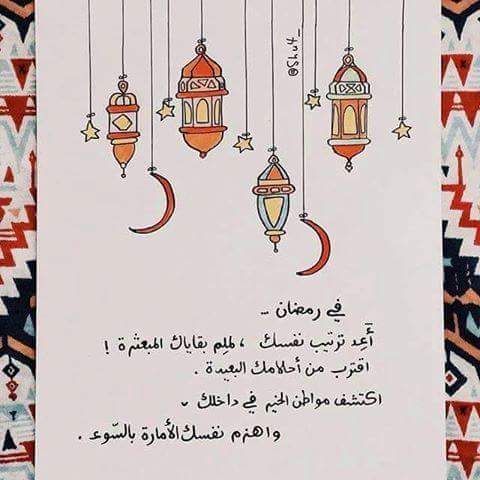 @Shu4_
في رمضان ..
أَعِد ترتيب نفسك ، لملِم بقاياك المبعثرة !
اقترب من أحلامك البعيدة .
اكتشف مواطن الخير في داخلك ~
واهزم نفسك الأمارة بالسّوء .